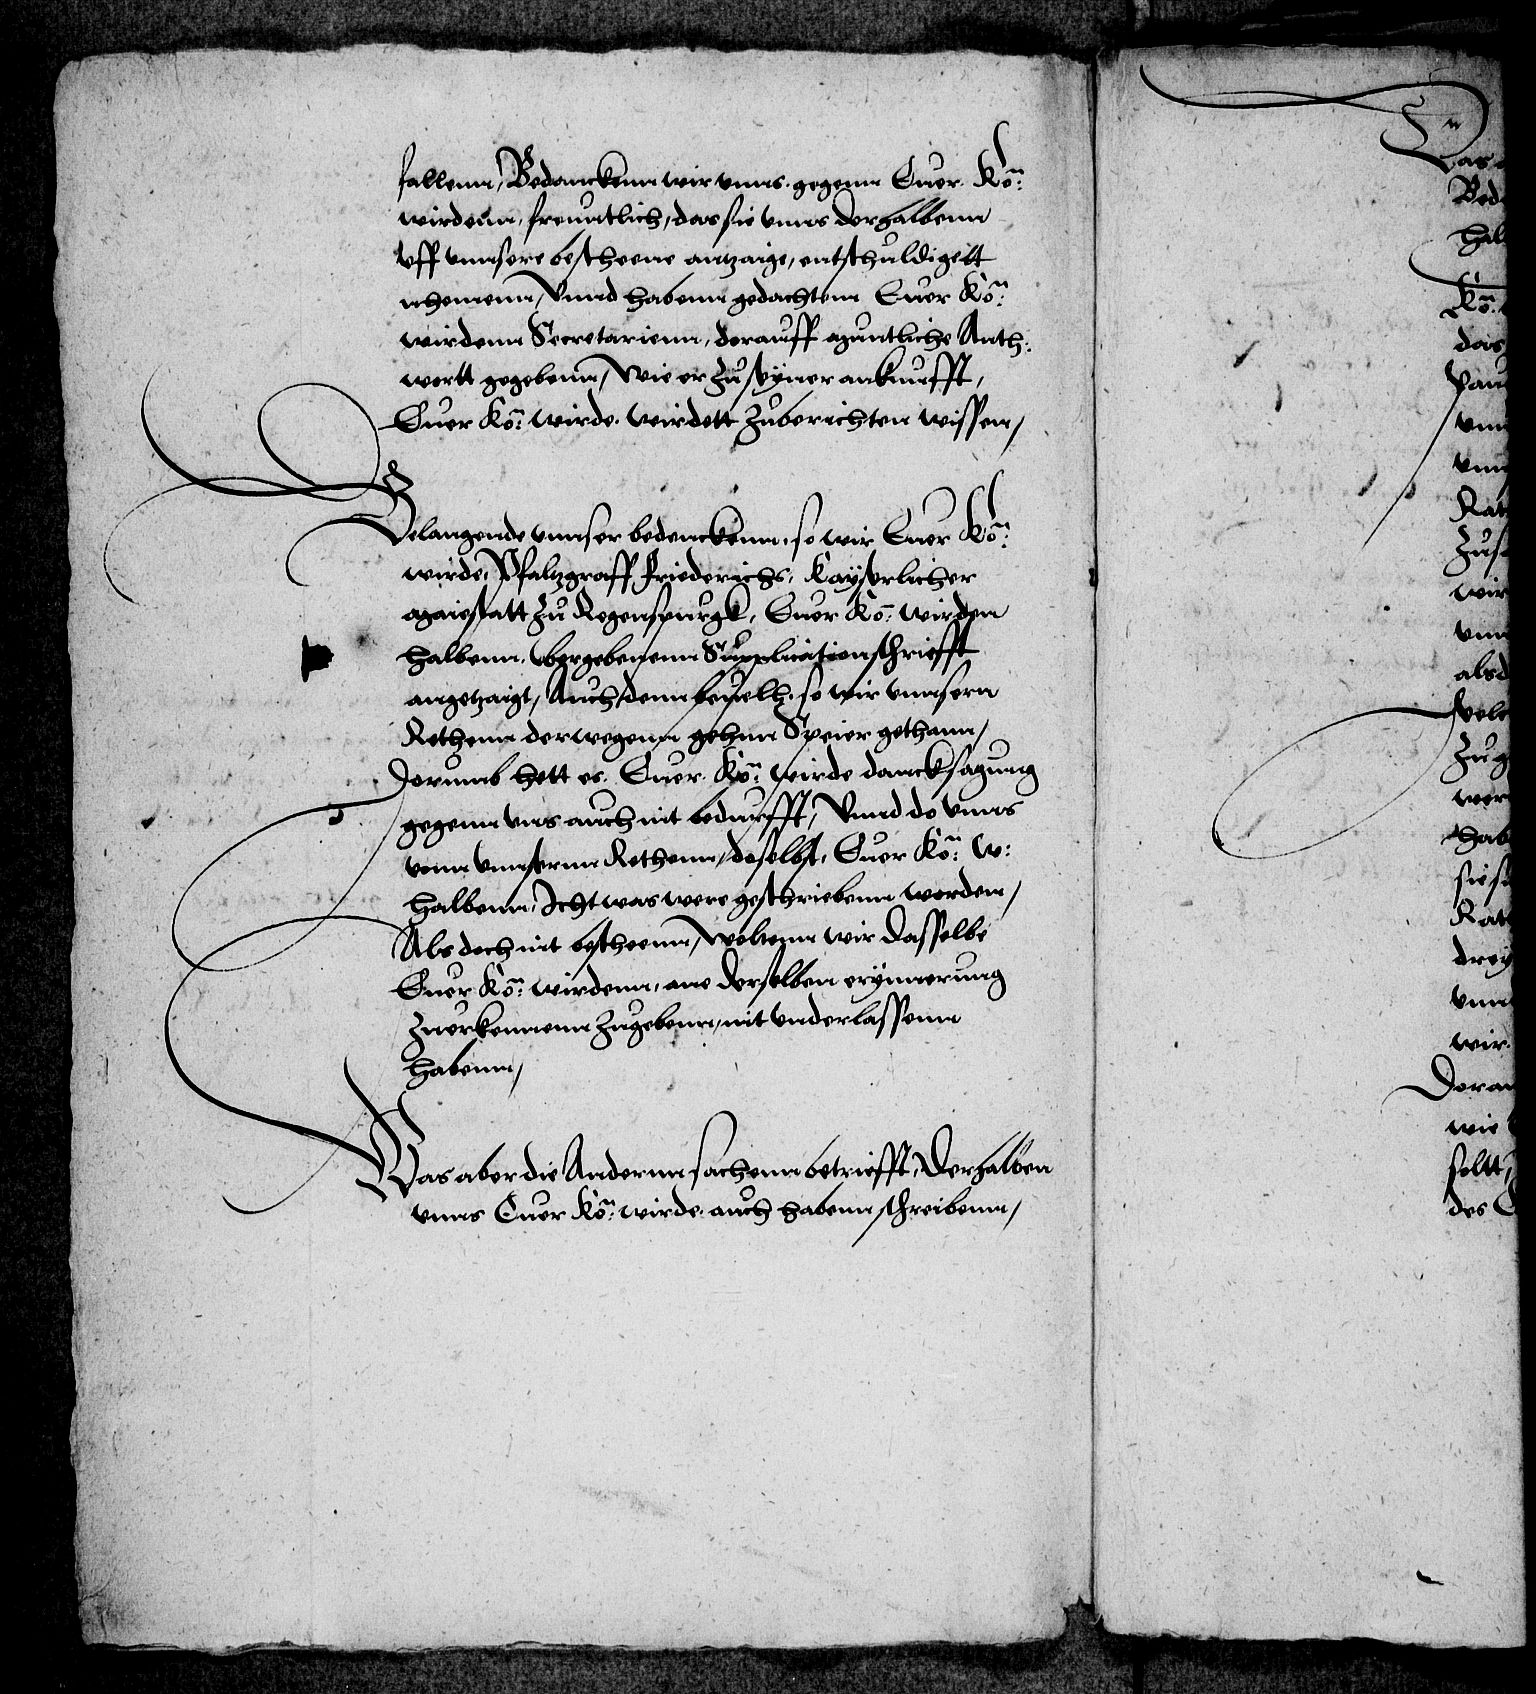 fallenn, Bedanckenn wir vnns gegenn Euer Kön:
wirdenn, freuntlich, das sie vnns derhalbenn
vff vnnsere bescheene antzaige, entschuldigett
nhemenn, Vnnd habenn gedachtem Euer Kön:
wirdenn Secretarienn, darauff muntliche Anth:
wortt gegebenn, Wie er zu seyner ankunfft,
Euer Kö: wirde. wirdett zuberichten wissen,
Belangende vnnser bedenckenn, so wir Euer Kön:
wirde, Pfaltzgraff friederichs, Kayserlicher
maiestatt zu Regenspurgk, Euer Kö: wirden
halbenn, vbergebenenn Supplication schriefft
angetzaigt, Auch denn beuelh, so wir vnnsern
Rethenn derwegenn gehnn Speier gethann,
Dorumb hett es. Euer. Kön: wirde dancksagung
gegenn vns auch nit bedurfft, Vnnd do vnns
vonn vnnsernn Rethenn, daselbst, Euer Kön: W:
halbenn, Icht was were geschriebenn worden,
Als doch nit bescheenn, Woltenn wir dasselbe
Euer Kön: wirdenn, ane derselben erynnerung
Zuerkennenn zugebenn, nit vnderlassenn
habenn,
Was aber die Andernn sachenn betriefft, Derhalben
vnns Euer Kön: wirde auch habenn schreibenn,
Bed
hal
Kön:
das
vnn
vnn
Rat
Zuse
wir
vnn
alsd
Zu g
wer
hab
sie si
Rat
drey
vnn
wir
Doran
wie
soltt,
des